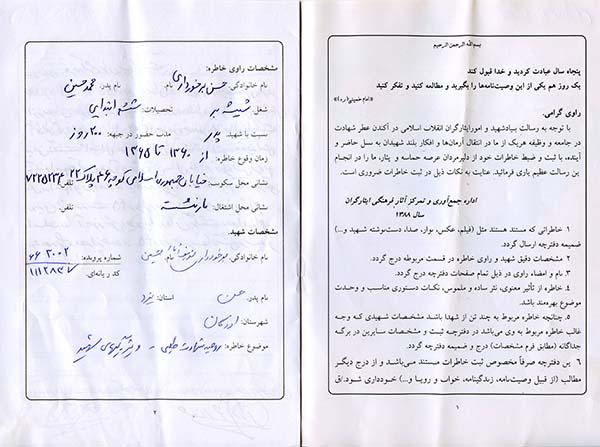 بسم‌الله الرحمن الرحیم
پنجاه سال عبادت کردید و خدا قبول کند
یک روز هم یکی از این وصیت‌نامه‌ها را بگیرید و مطالعه کنید و تفکر کنید
«امام خمینی(ره)»
راوی گرامی.
با توجه به رسالت بنیادشهید و امورایثارگران انقلاب اسلامی در آکندن عطر شهادت
در جامعه و وظیفه هریک از ما در انتقال آرمان‌ها و افکار بلند شهیدان به نسل حاضر و
آینده، با ثبت و ضبط خاطرات خود از دلیرمردان عرصه حماسه و ایثار، ما را در انجام
این رسالت عظیم یاری فرمائید. عنایت به نکات ذیل در ثبت خاطرات ضروری است.
اداره جمع‌آوری و تمرکز آثار فرهنگی ایثارگران
سال ۱۳۸۸
۱ خاطراتی که مستند هستند مثل (فیلم، عکس، نوار، صدا، دست‌نوشته شهید و...)
ضمیمه دفترچه ارسال گردد.
۲ مشخصات دقیق شهید و راوی خاطره در قسمت مربوطه درج گردد.
۳ نام و امضاء راوی در ذیل تمام صفحات دفترچه درج گردد.
۴ خاطره از تأثیر معنوی، نثر ساده و ملموس، نکات دستوری مناسب و وحدت
موضوع بهره‌مند باشد.
۵ چنانچه خاطره مربوط به چند تن از شهدا باشد مشخصات شهیدی که وجه
غالب خاطره مربوط به وی می‌باشد در دفترچه ثبت و مشخصات سایرین در برگه
جداگانه (مطابق فرم مشخصات) درج و ضمیمه دفترچه گردد.
۶ این دفترچه صرفاً مخصوص ثبت خاطرات مستند می‌باشد و از درج دیگر
مطالب (از قبیل وصیت‌نامه، زندگینامه، خواب و رویا و...) خودداری شود.
۱
مشخصات راوی خاطره:
نام خانوادگی: برخورداری نام: حسن نام پدر: محمدحسین
شغل: شیشه بر تحصیلات: ششم ابتدایی
نسبت با شهید: پدر مدت حضور در جبهه: ۲۰۰ روز
زمان وقوع خاطره: از ۱۳۶۰ تا ۱۳۶۵
نشانی محل سکونت: خیابان جمهوری اسلامی کوچه ۴۶ پلاک ۲۲ تلفن: ۷۲۲۵۲۳۴
نشانی محل اشتغال: بازنشسته تلفن:
مشخصات شهید:
نام خانوادگی: برخورداری نام: شماره پرونده: ۶۶۲۰۰۲
کد رایانه‌ای: ۱۱۱۲۸۳۷
نام پدر: حسن استان: یزد
شهرستان: اردکان
موضوع خاطره: روحیه شهادت طلبی - و ویژگیهای شهید
۲